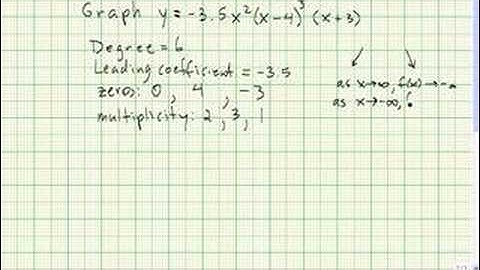 Graph y = -3.5x²(x-4)³(x+3)
Degree = 6
Leading coefficient = -3.5
zeros: 0, 4, -3
multiplicity: 2, 3, 1
as x→∞, f(x)→-∞
as x→-∞, f